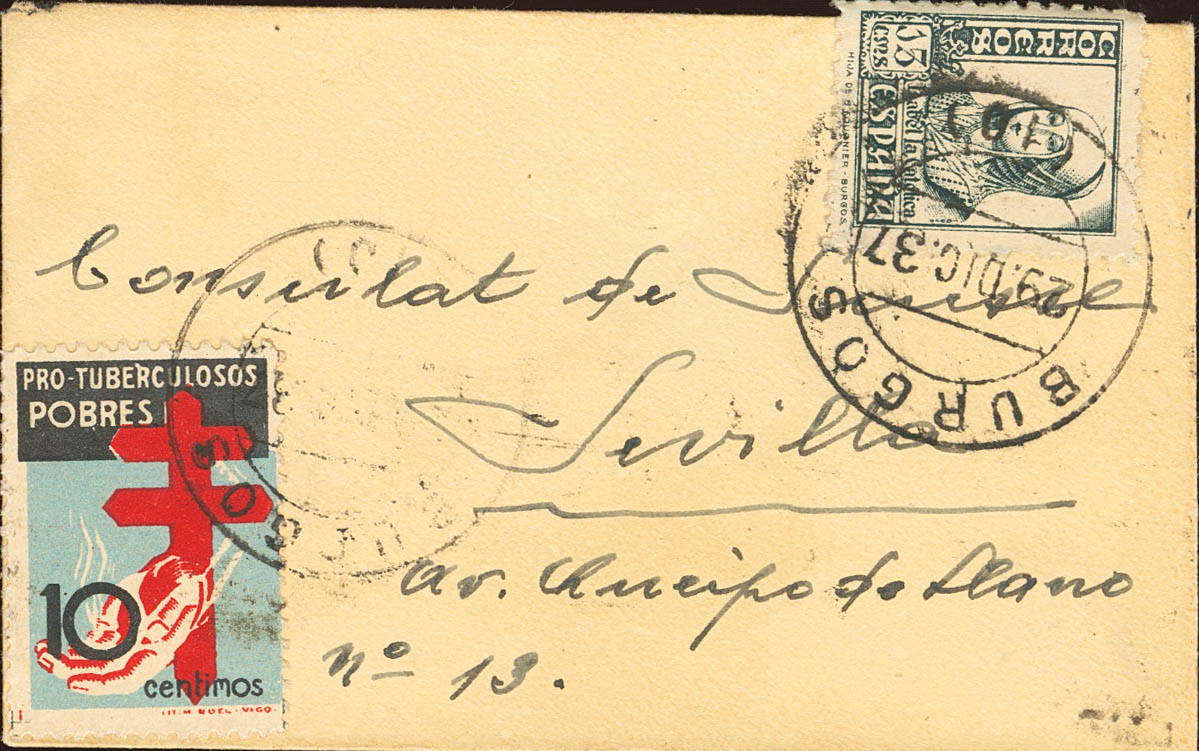 CORREOS
15 CTS
Isabel la Católica
ESPAÑA
HIJA DE B. FOURNIER - BURGOS.
BURGOS
29.DIC.37
Consulat de Suisse
Sevilla
Av. Queipo de Llano
Nº 13.
PRO-TUBERCULOSOS
POBRES
10
centimos
LIT. M. ROEL · VIGO.
BURGOS